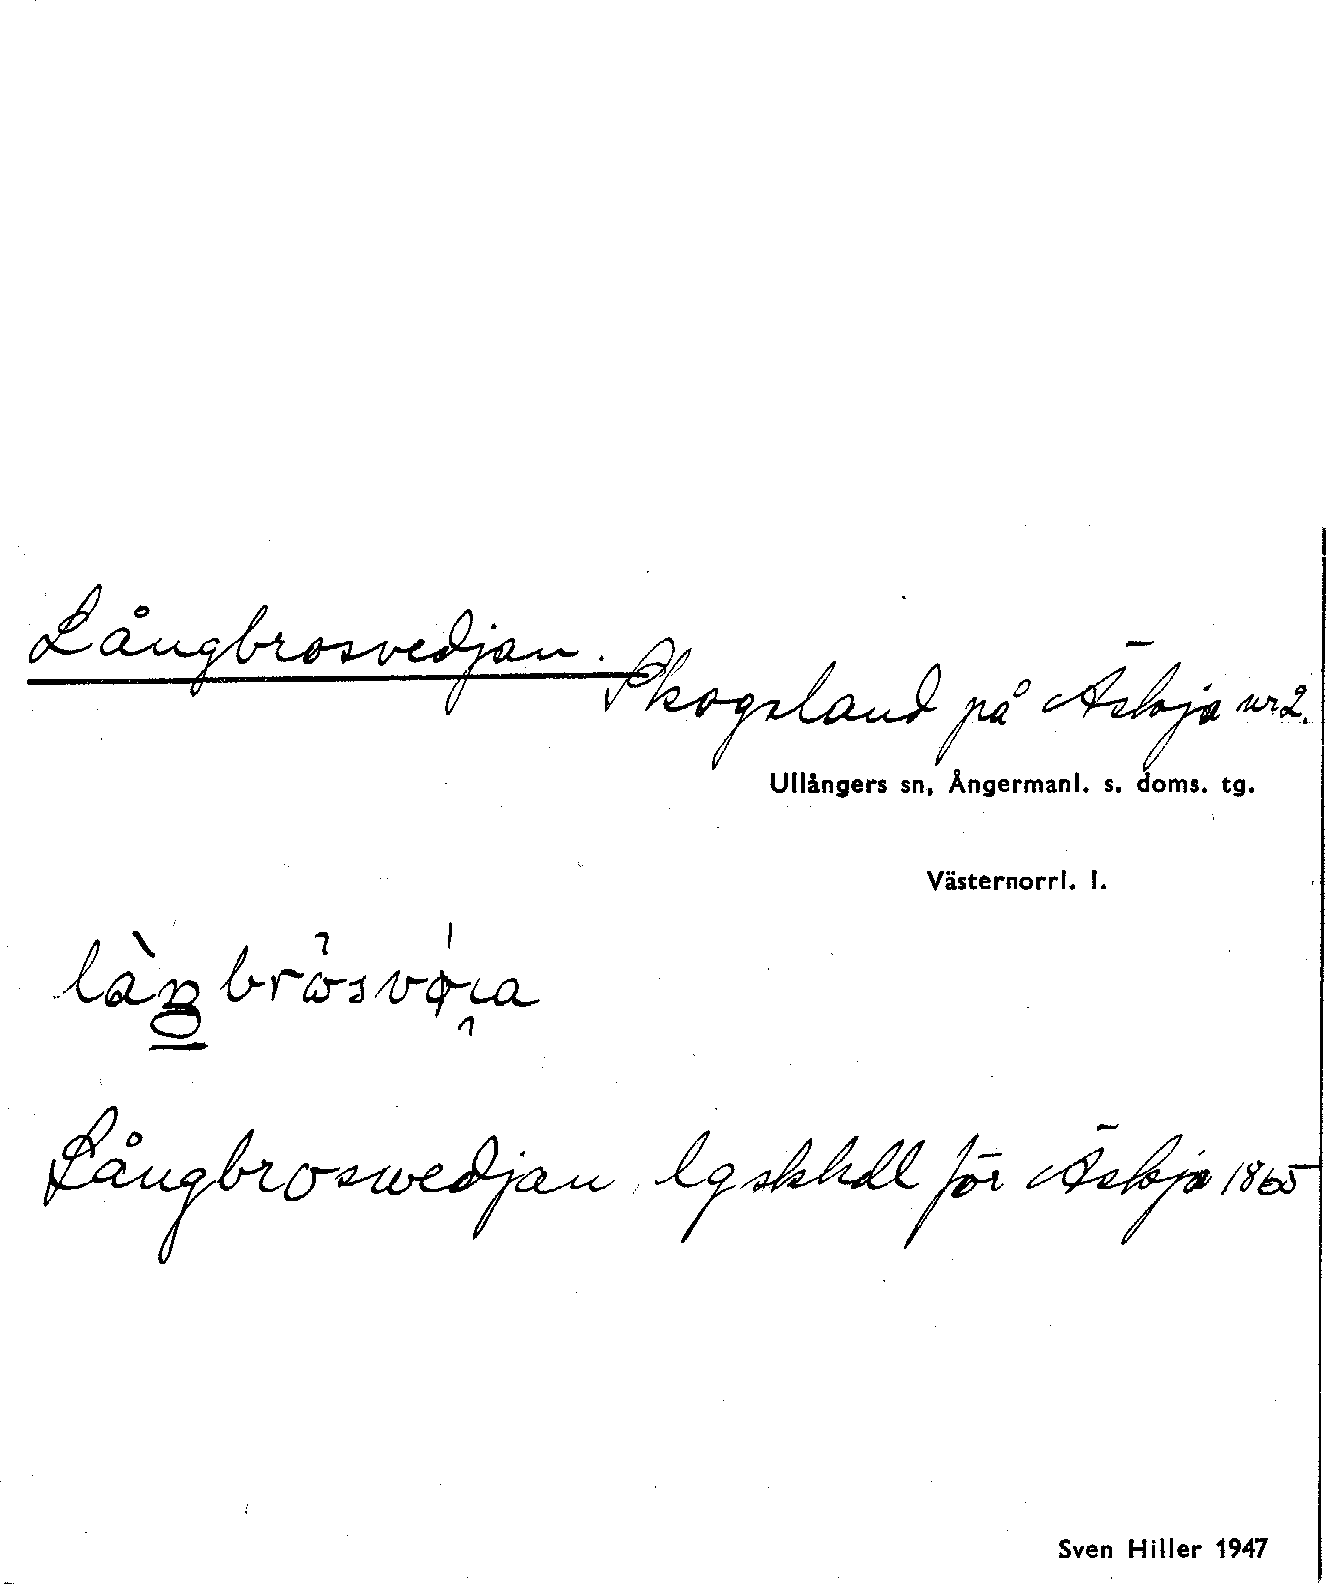 Långbrosvedjan.
Skogsland på Äskja nr 2.
Ullångers sn, Ångermanl. s. doms. tg.
Västernorrl. l.
Långbroswedjan lgskhdl för Äskja 1865
Sven Hiller 1947